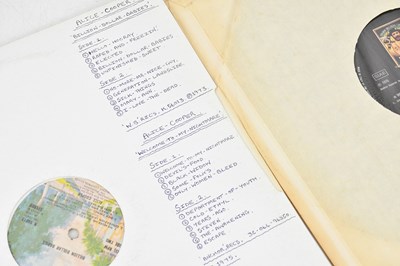 ALICE - COOPER
"BILLION - DOLLAR - BABIES"
SIDE 1
① HELLO - HOORAY
② RAPED - AND - FREEZIN'
③ ELECTED
④ BILLION - DOLLAR - BABIES
⑤ UNFINISHED - SWEET
SIDE 2
① NO - MORE - MR - NICE - GUY
② GENERATION - LANDSLIDE
③ SICK - THINGS
④ MARY - ANN
⑤ I - LOVE - THE - DEAD
1973
ALICE - COOPER
"WELCOME - TO - MY - NIGHTMARE"
SIDE 1
① WELCOME - TO - MY - NIGHTMARE
② DEVIL'S - FOOD
③ BLACK - WIDOW
④ SOME - FOLKS
⑤ ONLY - WOMEN - BLEED
SIDE 2
① DEPARTMENT - OF - YOUTH
② COLD - ETHYL
③ YEARS - AGO
④ STEVEN
⑤ THE - AWAKENING
⑥ ESCAPE
1975